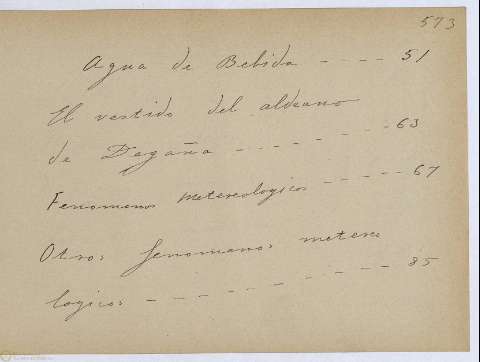 573
Agua de Bebida ---- 51
El vestido del aldeano
de Degaña ------ 63
Fenomenos metereologicos ----- 67
Otros fenomenos metere
logicos -------- 85